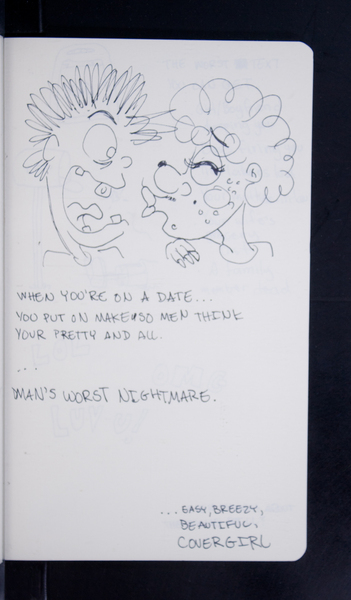 WHEN YOU'RE ON A DATE...
YOU PUT ON MAKE SO MEN THINK
YOUR PRETTY AND ALL.
...
MAN'S WORST NIGHTMARE.
...EASY, BREEZY,
BEAUTIFUL,
COVERGIRL